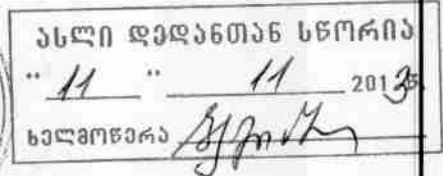 ასლი დედანთან სწორია
" 11 " 11 2013წ.
ხელმოწერა